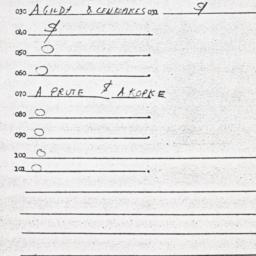 030 A GILDY & CENEDAKES 032 $
040 $
050 O
060 O
070 A PRUTE $ A KOPKE
080 O
090 O
200 O
202 O